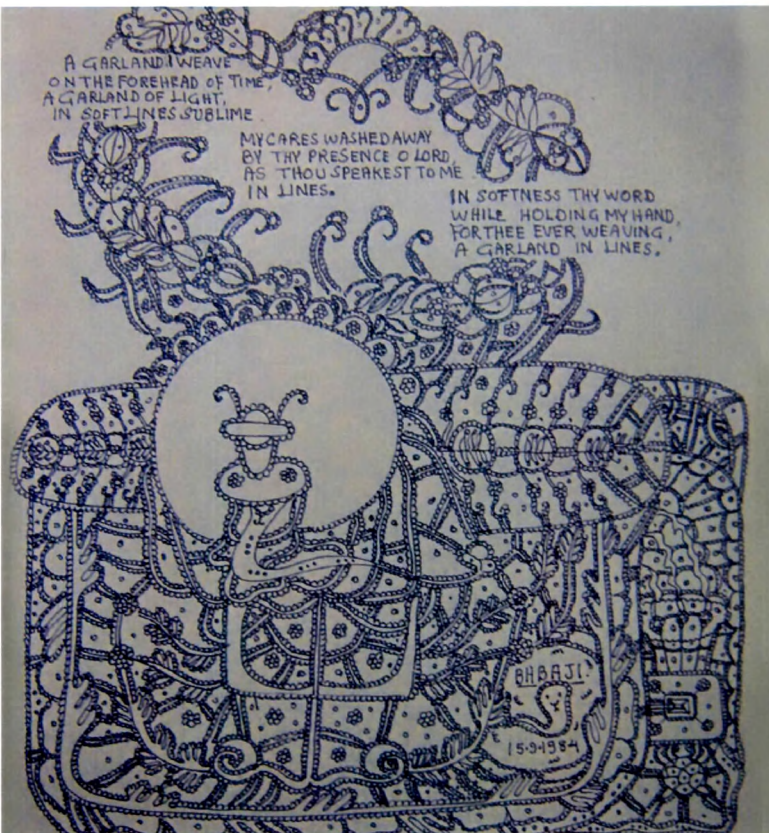 A GARLAND I WEAVE
ON THE FOREHEAD OF TIME,
A GARLAND OF LIGHT,
IN SOFT LINES SUBLIME.
MY CARES WASHED AWAY
BY THY PRESENCE O LORD,
AS THOU SPEAKEST TO ME
IN LINES.
IN SOFTNESS THY WORD
WHILE HOLDING MY HAND,
FOR THEE EVER WEAVING,
A GARLAND IN LINES.
BABAJI
15.9.1984